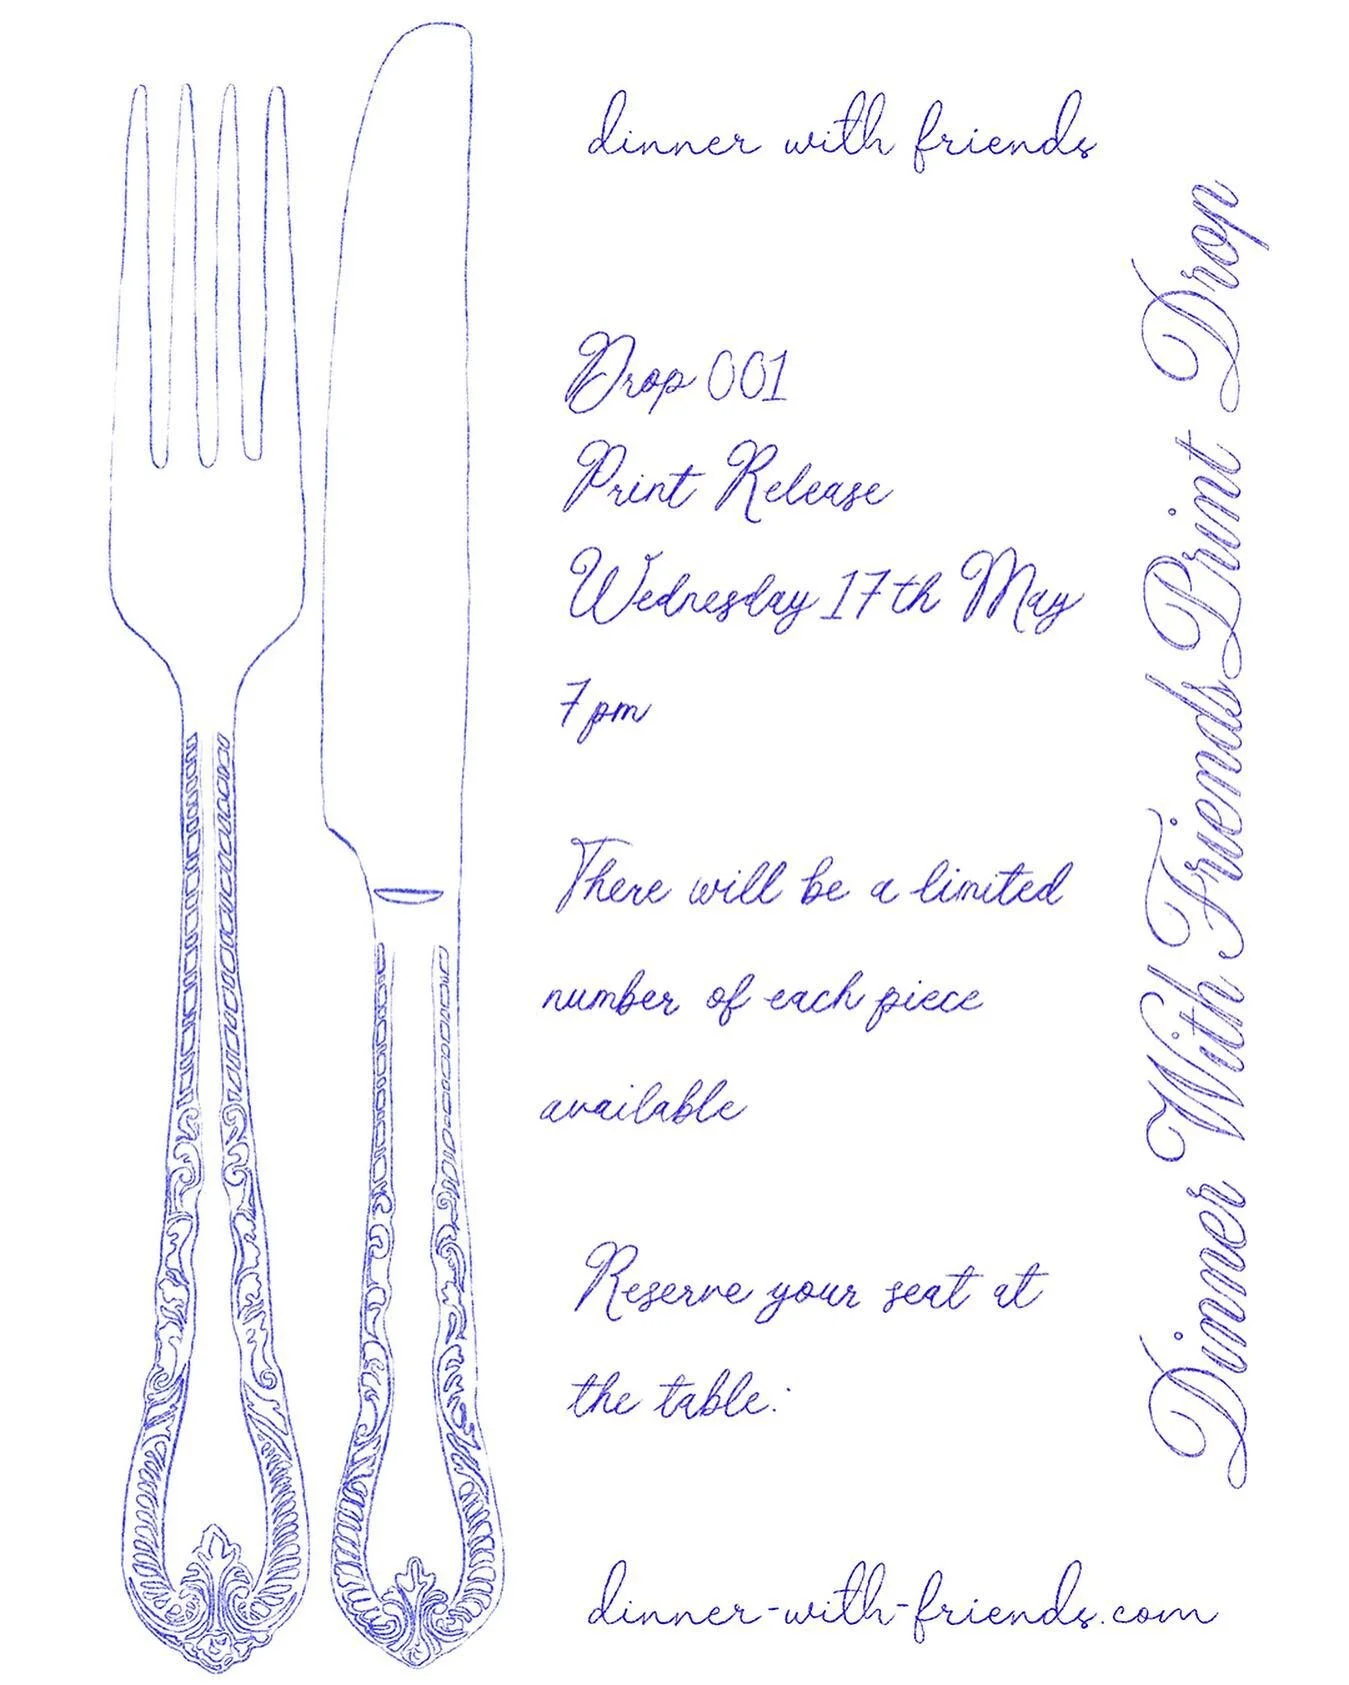 dinner with friends
Drop 001
Print Release
Wednesday 17th May
7pm
There will be a limited
number of each piece
available
Reserve your seat at
the table:
dinner-with-friends.com
Dinner With Friends Print Drop